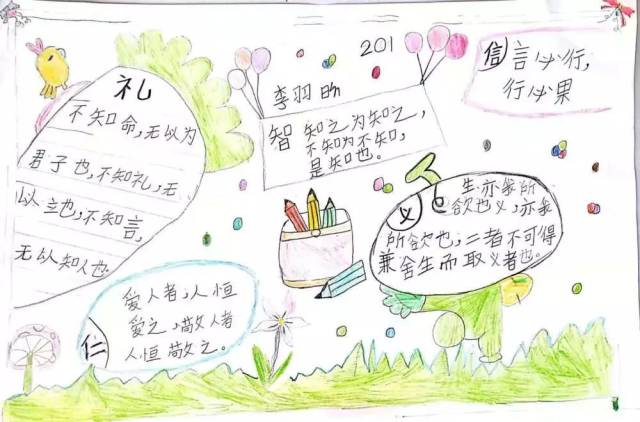 礼
不知命，无以为
君子也，不知礼，无
以立也，不知言，
无以知人也
201
李羽昀
智 知之为知之，
不知为不知，
是知也。
信 言必行，
行必果
义 生亦我所
欲也义，亦我
所欲也，二者不可得
兼舍生而取义者也。
仁
爱人者，人恒
爱之，敬人者
人恒敬之。